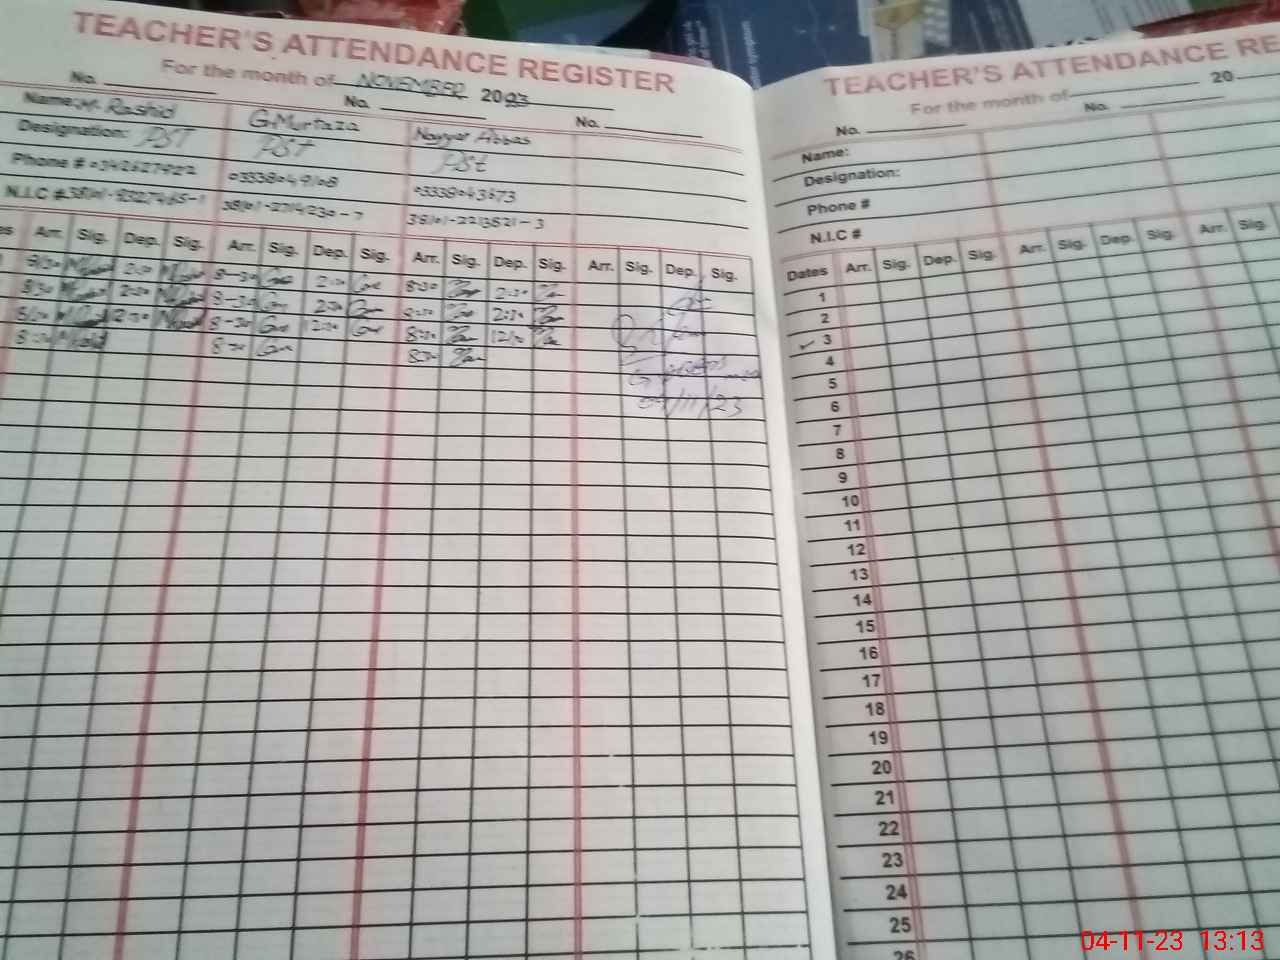 TEACHER'S ATTENDANCE REGISTER
For the month of NOVEMBER 2023
No. No. No.
Name: M. Rashid G.Murtaza Nayyar Abbas
Designation: PST PST PSt
Phone # 03338049108 03338043673
N.I.C # 38101-2714230-7 38101-2213821-3
Arr. Sig. Dep. Sig. Arr. Sig. Dep. Sig. Arr. Sig. Dep. Sig. Arr. Sig. Dep. Sig.
8:30 2:30 8-30 2:30 8:30 2:30
8:30 2:30 8-30 2:30 8:30 2:30
8:30 8-30 12:30 8:30 12:30
8:30 8:30 8:30
04/11/23
TEACHER'S ATTENDANCE RE
For the month of 20
No. No.
Name:
Designation:
Phone #
N.I.C #
Dates Arr. Sig. Dep. Sig. Arr. Sig. Dep. Sig. Arr. Sig.
1
2
3
4
5
6
7
8
9
10
11
12
13
14
15
16
17
18
19
20
21
22
23
24
25
26
04-11-23 13:13